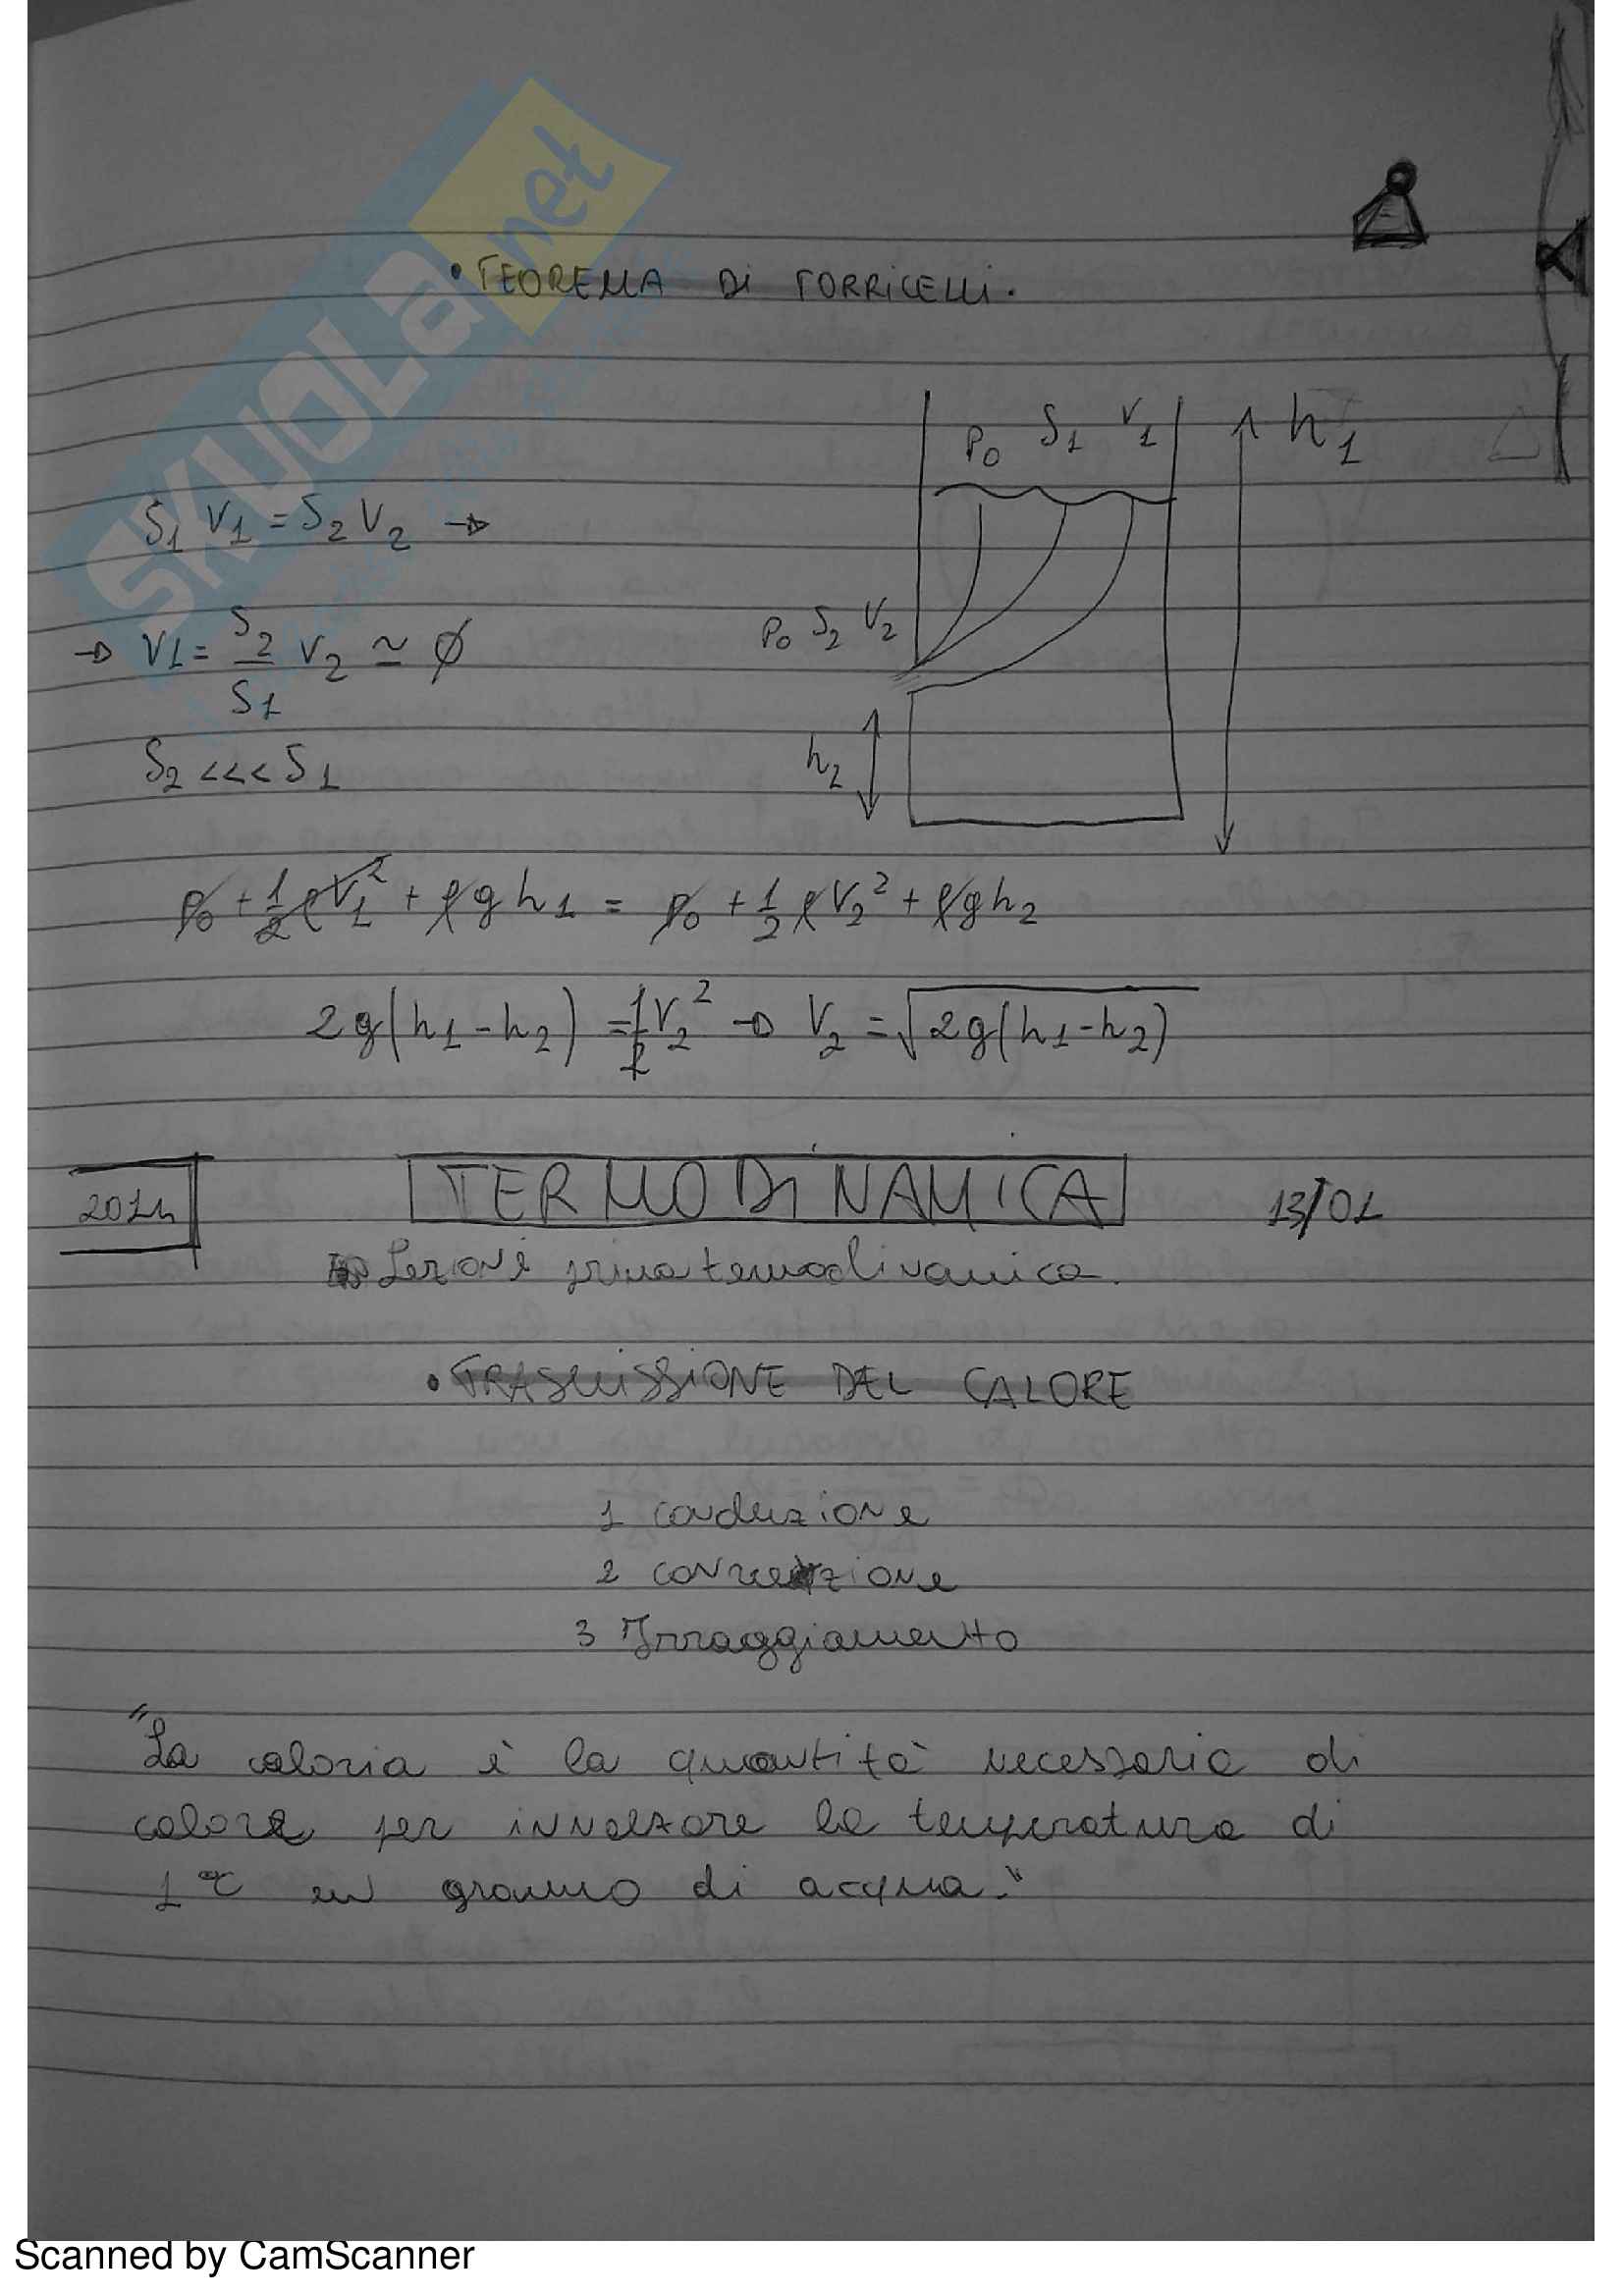 SKUOLA.net
• TEOREMA Di TORRICELLI.
p0 S1 V1 h1
S1 V1 = S2 V2 →
p0 S2 V2
→ V1 = S2/S1 V2 ≃ ∅
h2
S2 <<< S1
p0 + 1/2 ρV1² + ρgh1 = p0 + 1/2 ρV2² + ρgh2
2g(h1-h2) = 1/2 V2² → V2 = √2g(h1-h2)
2014 TERMODiNAMiCA 13/01
Lezioni prima termodinamica.
• TRASMISSIONE DEL CALORE
1 conduzione
2 convezione
3 Irraggiamento
"La caloria è la quantità necessaria di
calore per innalzare la temperatura di
1°C un grammo di acqua."
Scanned by CamScanner